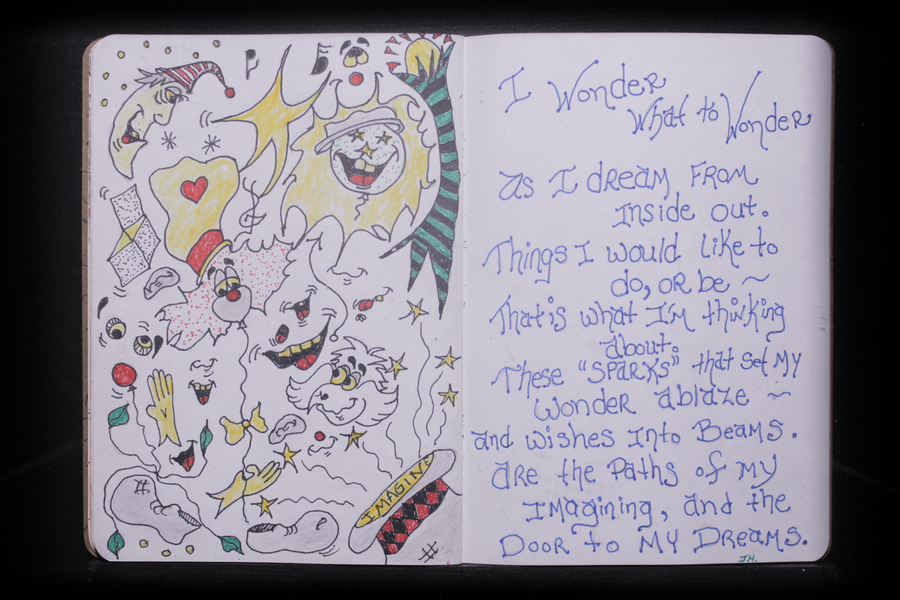 IMAGINE
I Wonder
What to Wonder
as I dream From
Inside out.
Things I would like to
do, or be ~
That is what I'm thinking
about.
These "SPARKS" that set My
Wonder ablaze ~
and wishes Into Beams.
are the Paths of my
Imagining, and the
Door to My Dreams.
JH.